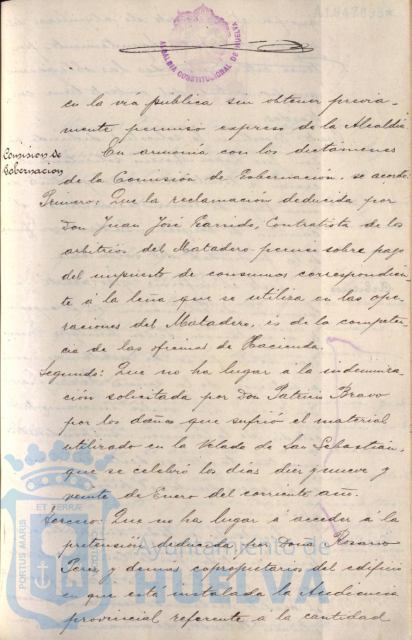 ALCALDIA CONSTITUCIONAL DE HUELVA
en la vía pública sin obtener previa-
mente permiso expreso de la Alcaldía
Comision de
Gobernacion
En armonía con los dictámenes
de la Comisión de Gobernación, se acordó:
Primero; Que la reclamación deducida por
Don Juan José Garrido, Contratista de los
arbitrios del Matadero sobre pago
del impuesto de consumos correspondien-
te á la leña que se utiliza en las ope-
raciones del Matadero, es de la competen-
cia de las oficinas de Hacienda.
Segundo: Que no ha lugar á la indemniza-
ción solicitada por Don Patricio Bravo
por los daños que sufrió el material
utilizado en la Velada de San Sebastián,
que se celebró los días diez y nueve y
veinte de Enero del corriente año.
Tercero: Que no ha lugar á acceder á la
pretensión deducida por Doña Rosario
Perez y demás copropietarios del edificio
en que está instalada la Audiencia
provincial referente a la cantidad
PORTUS MARIS
ET TERRÆ
Ayuntamiento de
HUELVA